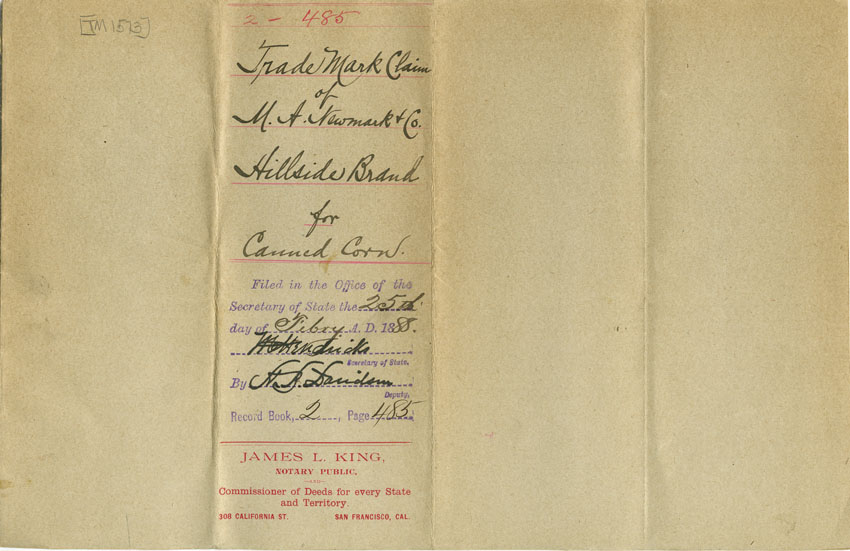 [TM 1573]
2 - 485
Trade Mark Claim
of
M. A. Newmark & Co.
Hillside Brand
for
Canned Corn.
Filed in the Office of the
Secretary of State the 25th
day of Febry A. D. 1888.
W C Hendricks
Secretary of State.
By
Davidson
Deputy.
Record Book, 2, Page 485
JAMES L. KING,
NOTARY PUBLIC,
—AND—
Commissioner of Deeds for every State
and Territory.
308 CALIFORNIA ST. SAN FRANCISCO, CAL.